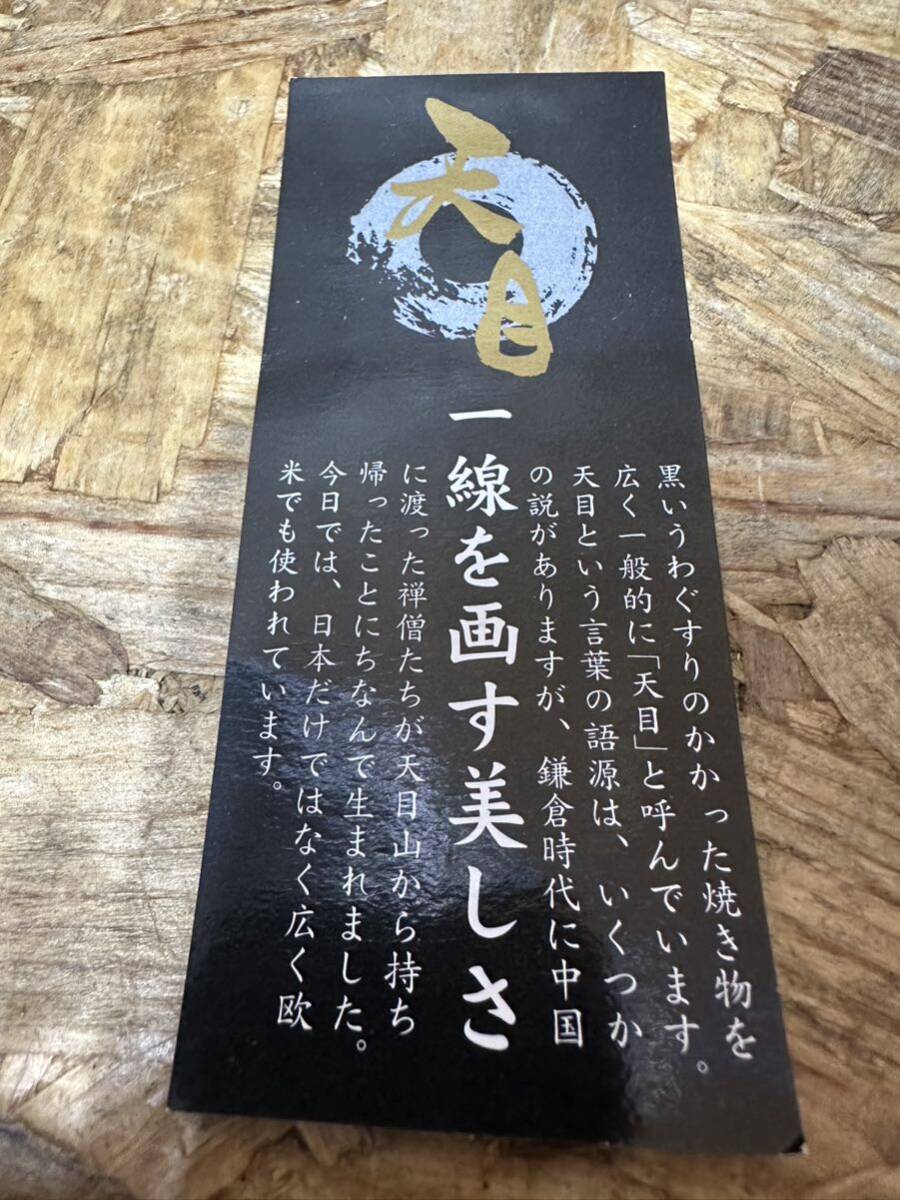 天目
黒いうわぐすりのかかった焼き物を
広く一般的に「天目」と呼んでいます。
天目という言葉の語源は、いくつか
の説がありますが、鎌倉時代に中国
一線を画す美しさ
に渡った禅僧たちが天目山から持ち
帰ったことにちなんで生まれました。
今日では、日本だけではなく広く欧
米でも使われています。